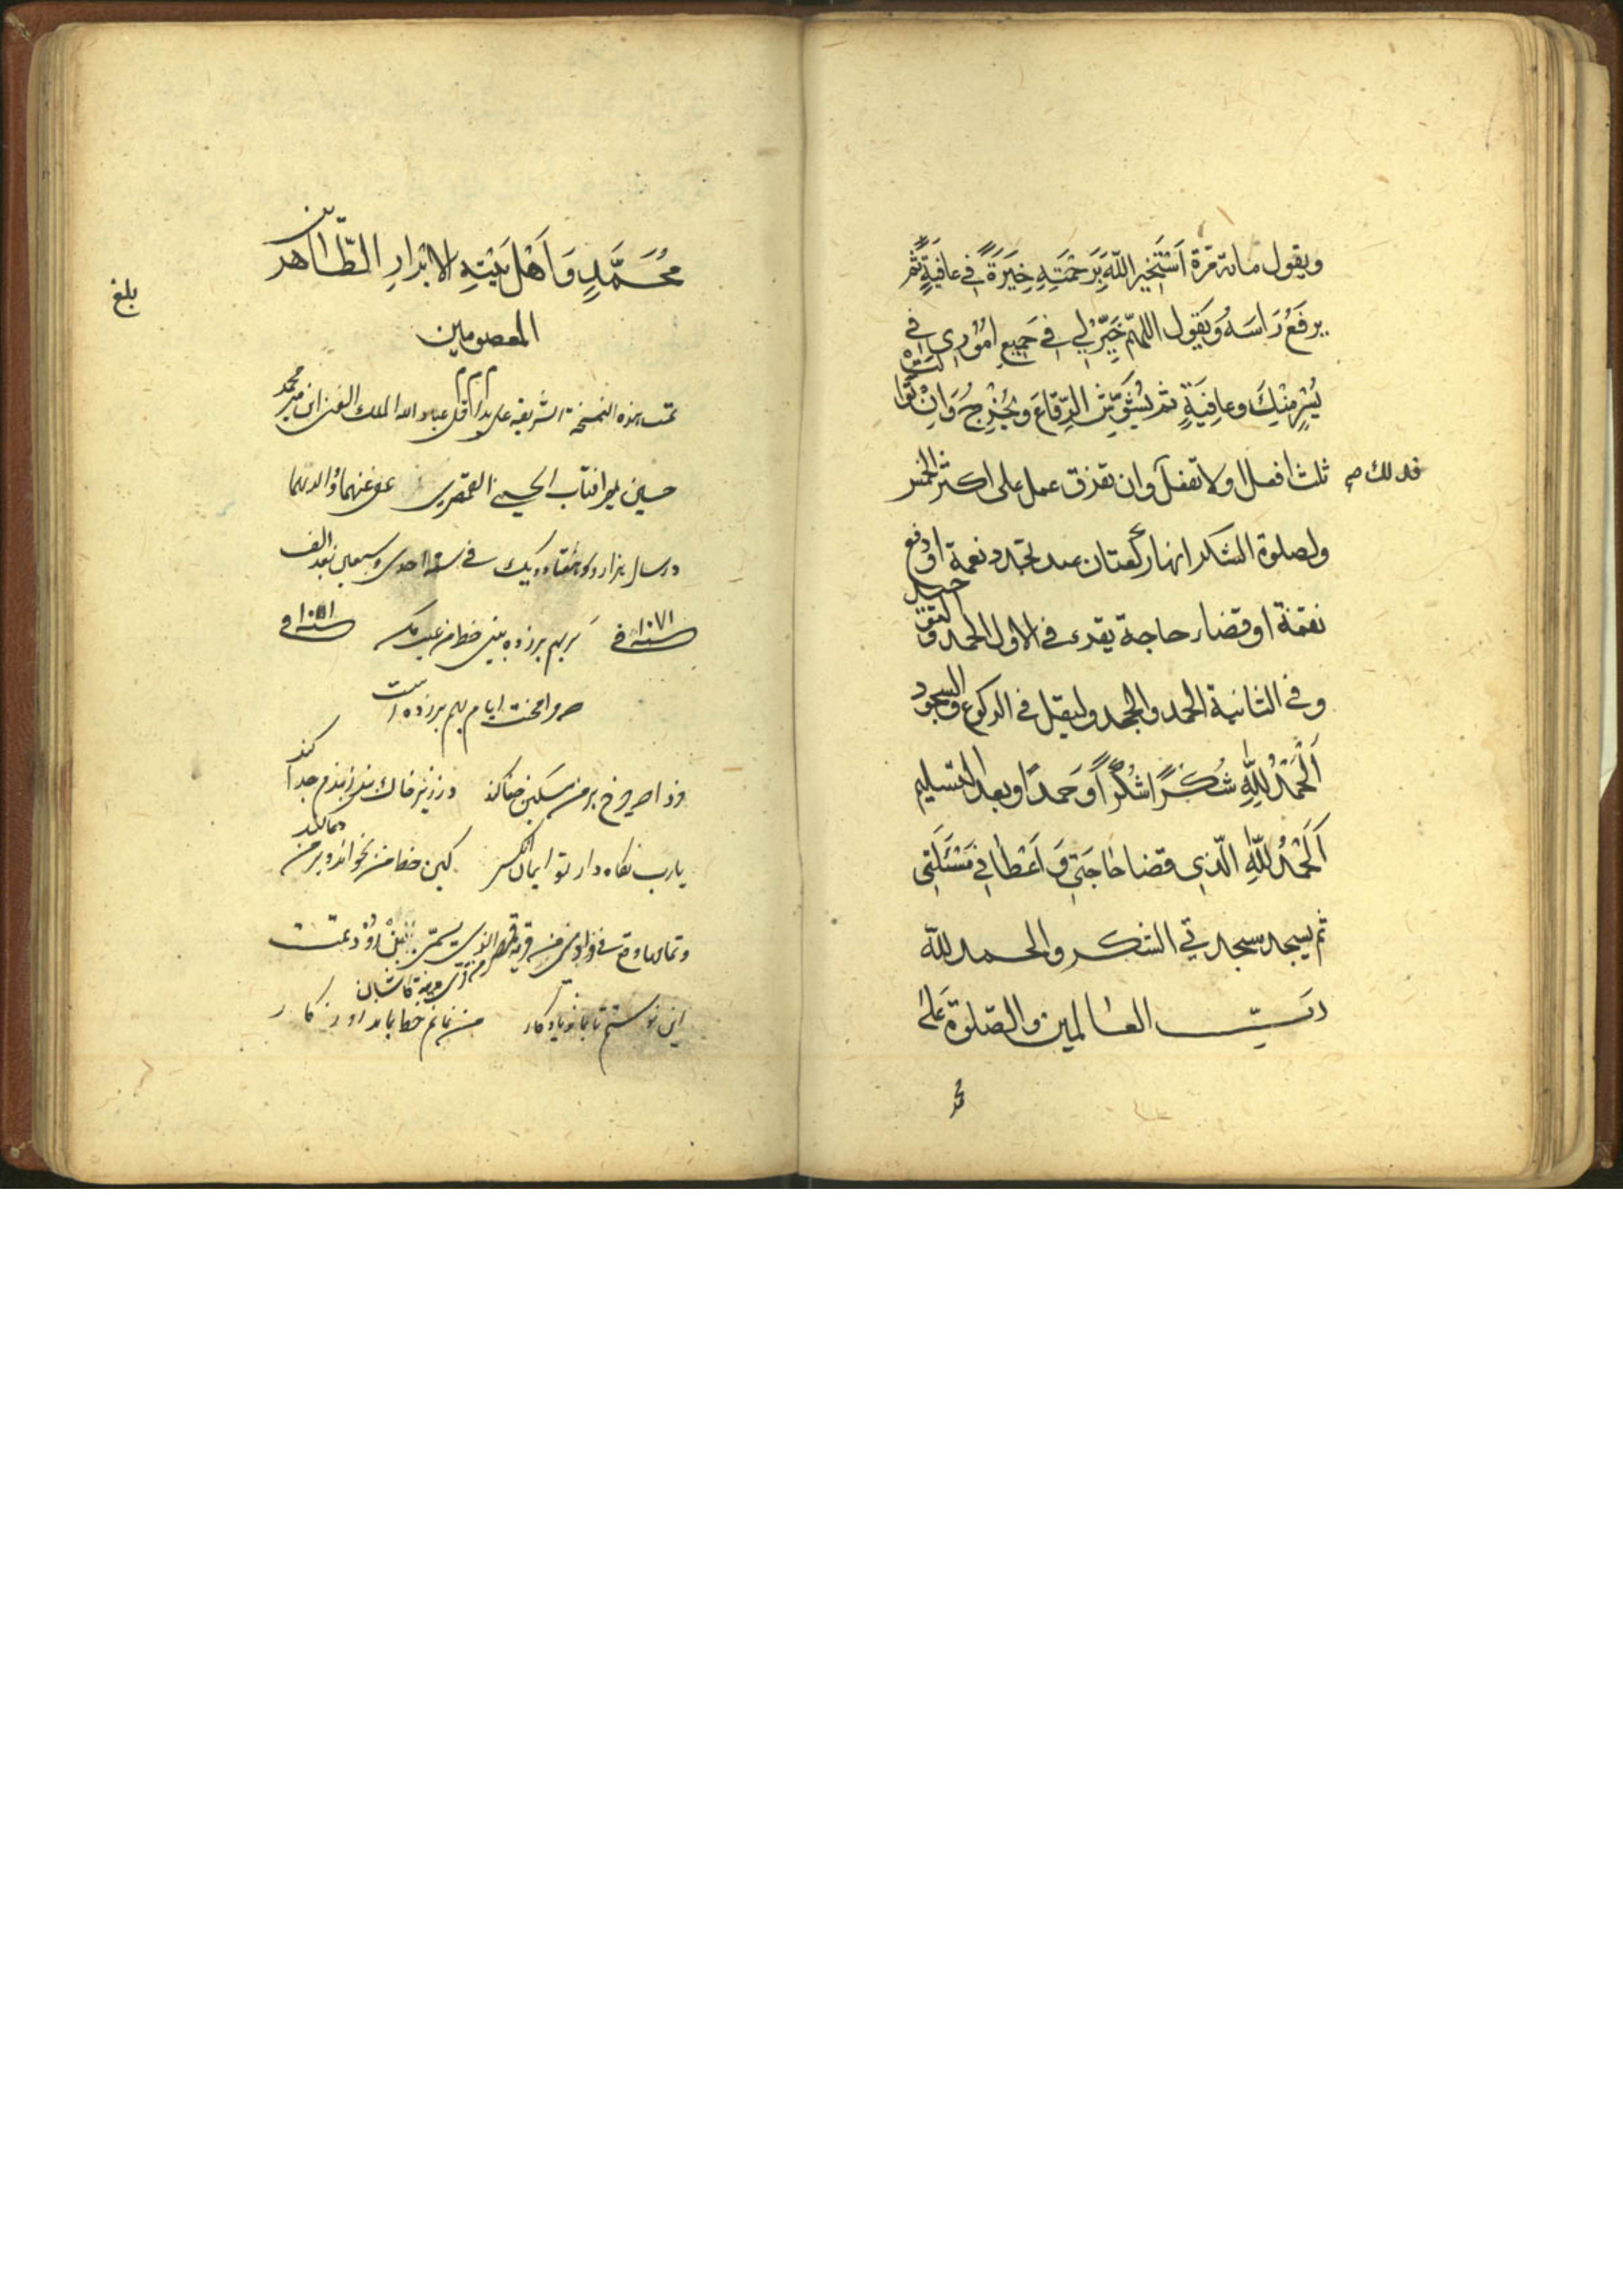 ويقول مائة مرة اَسْتَخِيرُ اللّٰهَ بِرَحْمَتِهِ خِيَرَةً فِي عافِيَةٍ ثم
يرفَعُ رَاسَهُ وَيَقول اللهمّ خِرْ لِي فِي جَميعِ اُمُورِي فِي
يُسْرٍ مِنْكَ وعافِيَةٍ ثم يُشَوِّشُ الرِّقاعَ ويُخْرِجُ وَاِنْ تَوالَتْ
ثلث افعل او لا تفعل فذلك وان تفرق عمل على اكثر الخمس
ولصلوة الشكر انها ركعتان عند تجدد نعمة او دفع
نقمة او قضاء حاجة يقرء في الاولى الحمد والتوحيد
وفي الثانية الحمد والجحد وليقل في الركوع والسجود
اَلْحَمْدُ لِلّٰهِ شُكْرًا شُكْرًا وَحَمدًا وبعد التسليم
اَلْحَمْدُ لِلّٰهِ الّذي قضا حاجَتي وَاَعْطاني مَسْئَلَتي
ثم يسجد سجدتي الشكر والحمد للّٰه
ربّ العالمين والصّلوة عَلىٰ
محمد
مُحَمَّدٍ وَاَهْلِ بَيْتِهِ الابْرارِ الطّاهرين
المعصومين
بلغ
تمت هذه النسخة الشريفة على يد اقل عباد الله الملك الغني ابن مير محمد
حسين مير افتاب الحسيني القمصري عفي عنهما
در سال هزار و هفتاد و يك في سنه احدى وسبعين بعد الف
سنه ١٠٧١ في بر هم زده بيني خط من عيب مكن
كه مرا محنت ايام بهم بر زده است
فردا كه چرخ بر من مسكين جفا كند در زير خاك بند ز بندم جدا كند
يارب نگاه دار تو ايمان آنكسى كين خط من بخواند و بر من دعا كند
اين نوشتم تا بماند يادگار من نمانم خط بماند روزگار